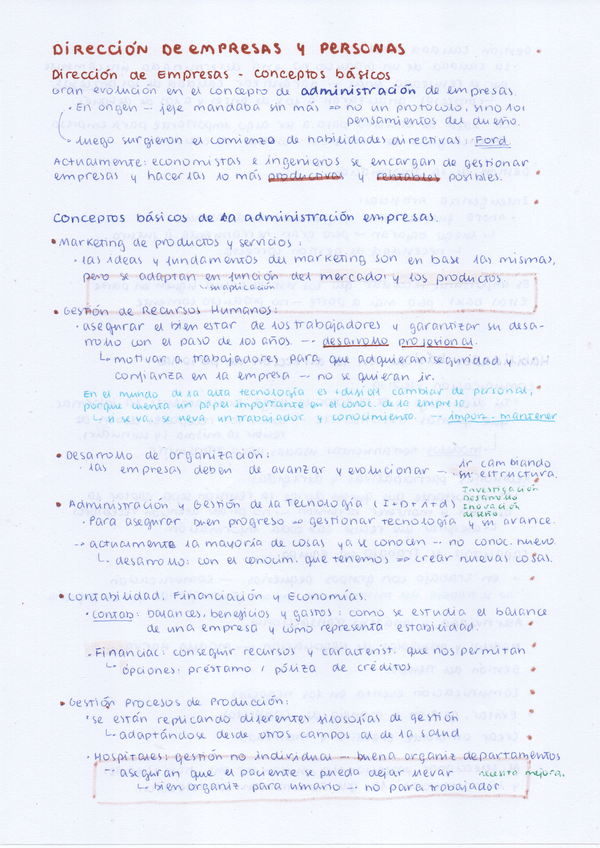 DIRECCIÓN DE EMPRESAS Y PERSONAS
Dirección de Empresas - Conceptos básicos
Gran evolución en el concepto de administración de empresas.
• En origen → jefe mandaba sin más ⇒ no un protocolo, sino los
pensamientos del dueño.
• luego surgieron el comienzo de habilidades directivas Ford.
Actualmente: economistas e ingenieros se encargan de gestionar
empresas y hacerlas lo más productivas y rentables posibles.
Conceptos básicos de la administración empresas.
• Marketing de productos y servicios:
• las ideas y fundamentos del marketing son en base las mismas,
pero se adaptan en función del mercado y los productos
↳ su aplicación
• Gestión de Recursos Humanos:
• asegurar el bien estar de los trabajadores y garantizar su desa-
rrollo con el paso de los años. → desarrollo profesional.
↳ motivar a trabajadores para que adquieran seguridad y
confianza en la empresa → no se quieran ir.
En el mundo de la alta tecnología es + difícil cambiar de personal,
porque cuenta un papel importante en el conoc. de la empresa.
↳ si se va, se lleva un trabajador y conocimiento. → import. mantener
• Desarrollo de organización:
• las empresas deben de avanzar y evolucionar → ir cambiando
su estructura.
• Administración y Gestión de la Tecnología (I+D+i+d)
Investigación
Desarrollo
Inovación
diseño
• Para asegurar buen progreso ⇒ gestionar tecnología y su avance.
→ actualmente la mayoría de cosas ya se conocen → no conoc. nuevo.
↳ desarrollo: con el conocim. que tenemos ⇒ crear nuevas cosas.
• Contabilidad, Financiación y Economías.
• Contab: balances, beneficios y gastos: como se estudia el balance
de una empresa y cómo representa estabilidad.
• Financial: conseguir recursos y caracterist. que nos permitan
↳ opciones: préstamo / póliza de créditos
• Gestión Procesos de Producción:
• se están replicando diferentes filosofías de gestión
↳ adaptándose desde otros campos al de la salud
• Hospitales: gestión no individual → buena organiz departamentos
→ aseguran que el paciente se pueda dejar llevar necesita mejora.
↳ bien organiz para usuario → no para trabajador.